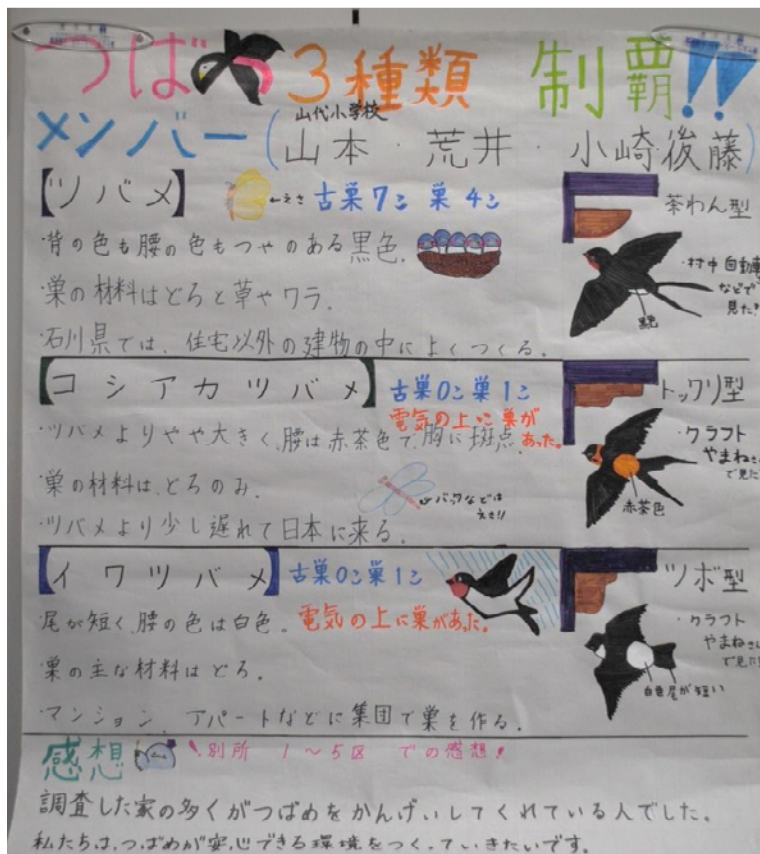 つばめ 3種類 制覇!!
山代小学校
メンバー(山本・荒井・小崎後藤)
【ツバメ】 ←えさ 古巣7コ 巣4コ
茶わん型
・背の色も腰の色もつやのある黒色.
・巣の材料はどろと草やワラ.
・石川県では、住宅以外の建物の中によくつくる.
・村中自動車
などで
見た
黒色
【コシアカツバメ】 古巣0コ 巣1コ
電気の上に巣があった。
トックリ型
・ツバメよりやや大きく、腰は赤茶色で、胸に斑点.
・巣の材料は、どろのみ.
・ツバメより少し遅れて日本に来る.
えさ!!
・クラフト
やまねさん
で見た
赤茶色
【イワツバメ】 古巣0コ 巣1コ
電気の上に巣があった。
ツボ型
・尾が短く、腰の色は白色.
・巣の主な材料はどろ.
・マンション、アパートなどに集団で巣を作る.
・クラフト
やまねさん
で見た
白色 尾が短い
感想 別所 1〜5区 での感想!
調査した家の多くがつばめをかんげいしてくれている人でした。
私たちは、つばめが安心できる環境をつくっていきたいです。